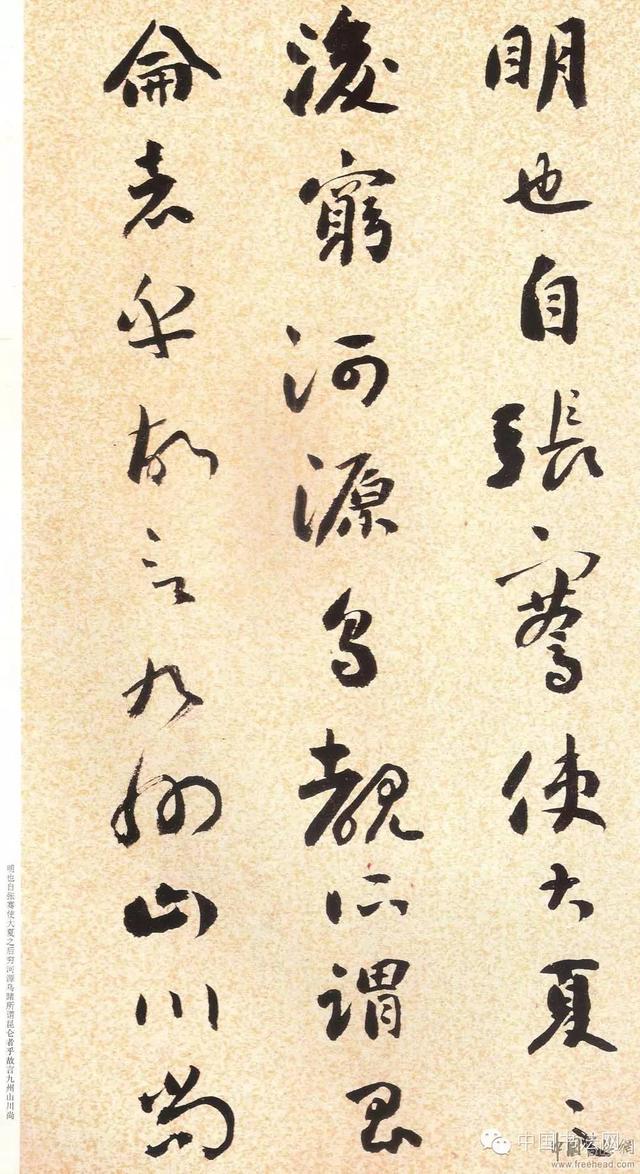 明也自張騫使大夏之
後窮河源烏覩所謂昆
侖者乎故言九州山川尚
明也自张骞使大夏之后穷河源乌睹所谓昆仑者乎故言九州山川尚
中国书法网
www.freehead.com